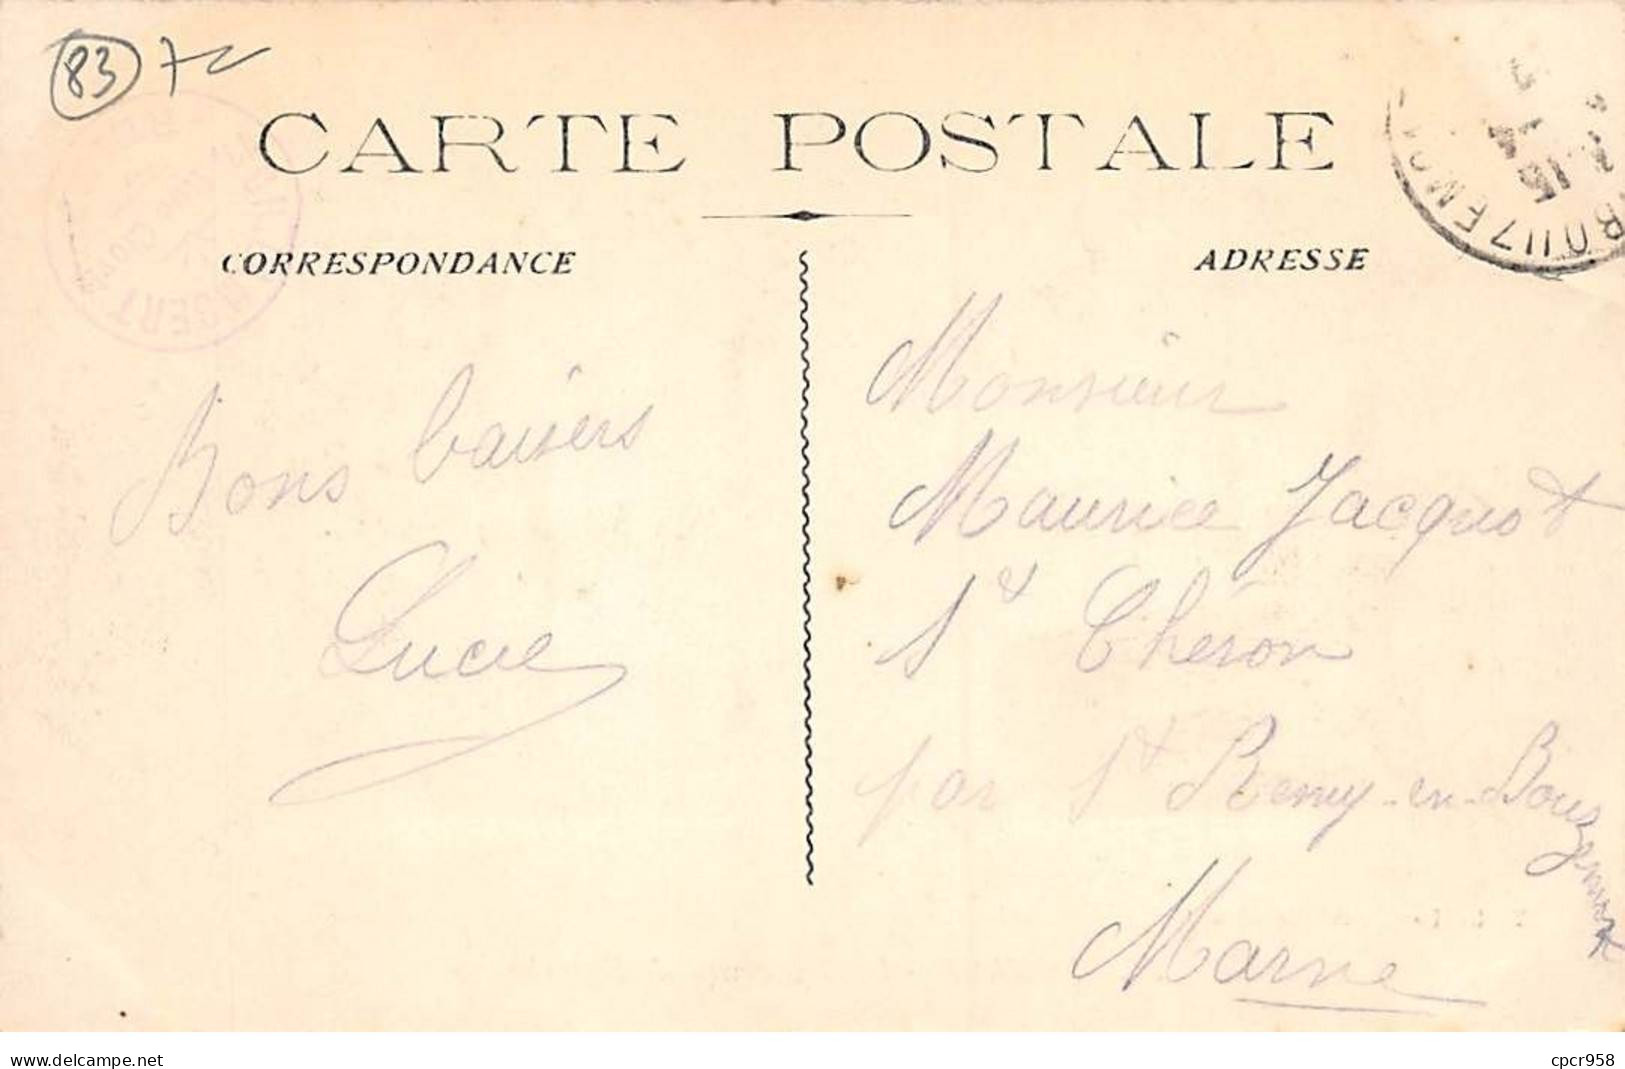 83
CARTE POSTALE
CORRESPONDANCE
ADRESSE
Bons baisers
Lucie
Monsieur
Maurice Jacquot
St Chéron
par St Remy-en-Bouzemont
Marne
www.delcampe.net
cpcr958